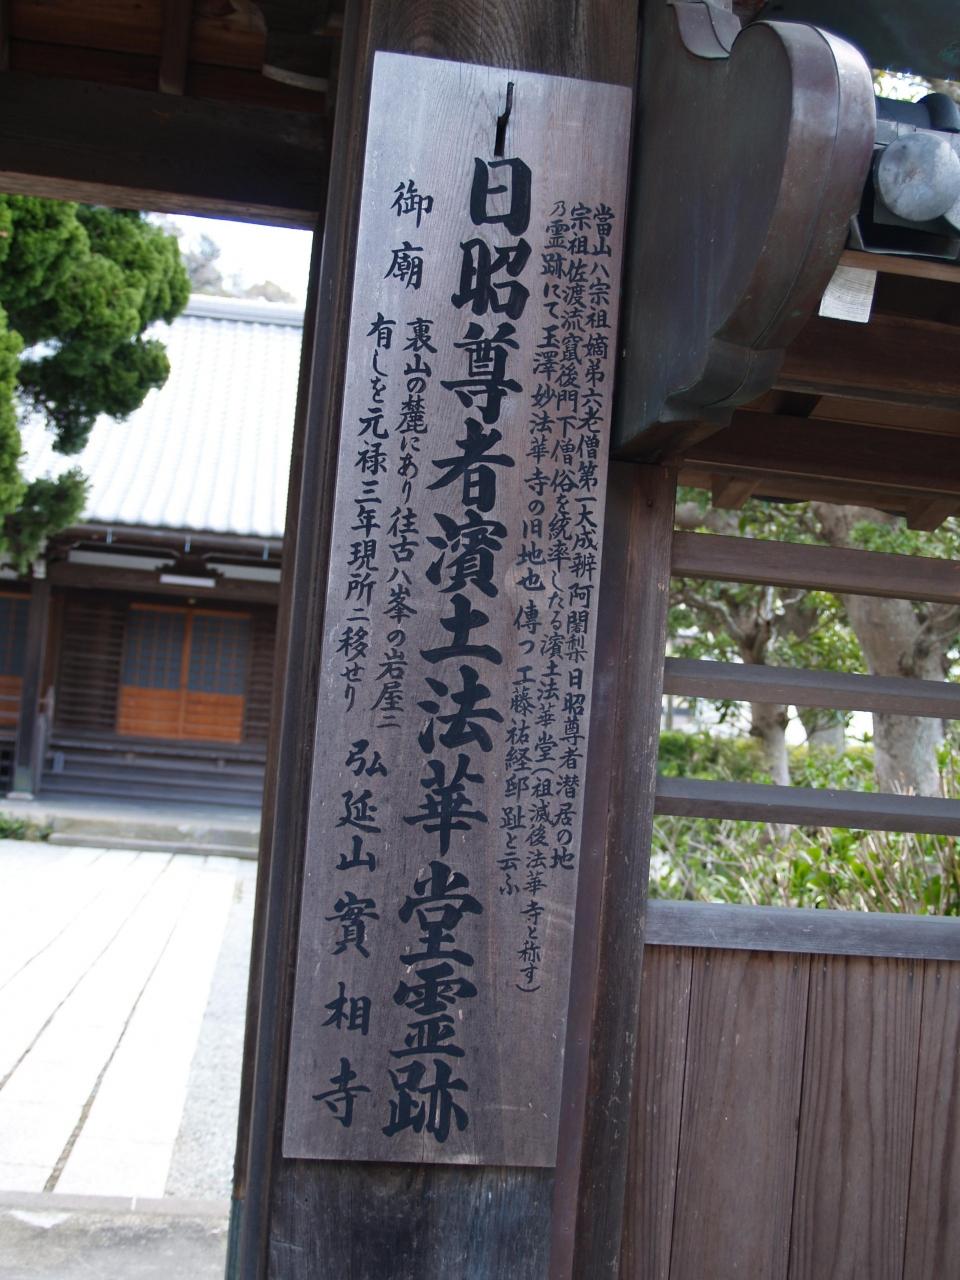 當山ハ宗祖嫡弟六老僧第一大成辨阿闍梨日昭尊者潜居の地
宗祖佐渡流竄後門下僧俗を統率したる濱土法華堂(祖滅後法華寺と称す)
乃霊跡にて玉澤妙法華寺の旧地也 傳つ工藤祐経邸趾と云ふ
日昭尊者濱土法華堂霊跡
御廟
裏山の麓にあり往古ハ峯の岩屋ニ
有しを元禄三年現所ニ移せり
弘延山實相寺